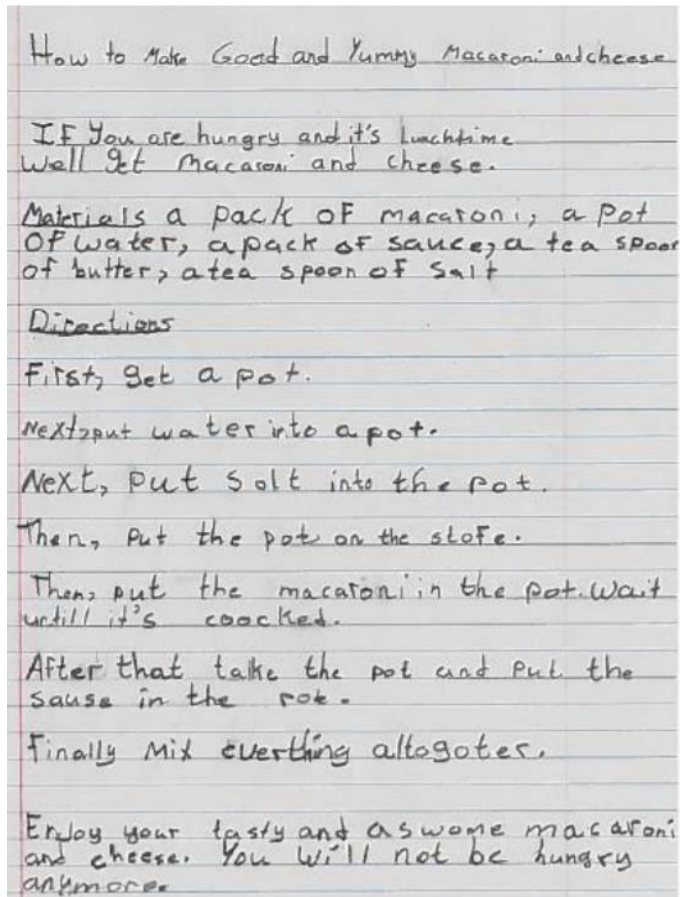 How to Make Good and Yummy Macaroni and cheese
IF You are hungry and it's Lunchtime
well get macaroni and cheese.
Materials a pack of macaroni, a pot
of water, a pack of sauce, a tea spoon
of butter, a tea spoon of salt
Directions
First, get a pot.
Next, put water into a pot.
Next, put salt into the pot.
Then, put the pot on the stofe.
Then, put the macaroni in the pot. Wait
untill it's coocked.
After that take the pot and put the
sause in the pot.
Finally Mix everthing altogoter.
Enjoy your tasty and aswome macaroni
and cheese. You will not be hungry
anymore.